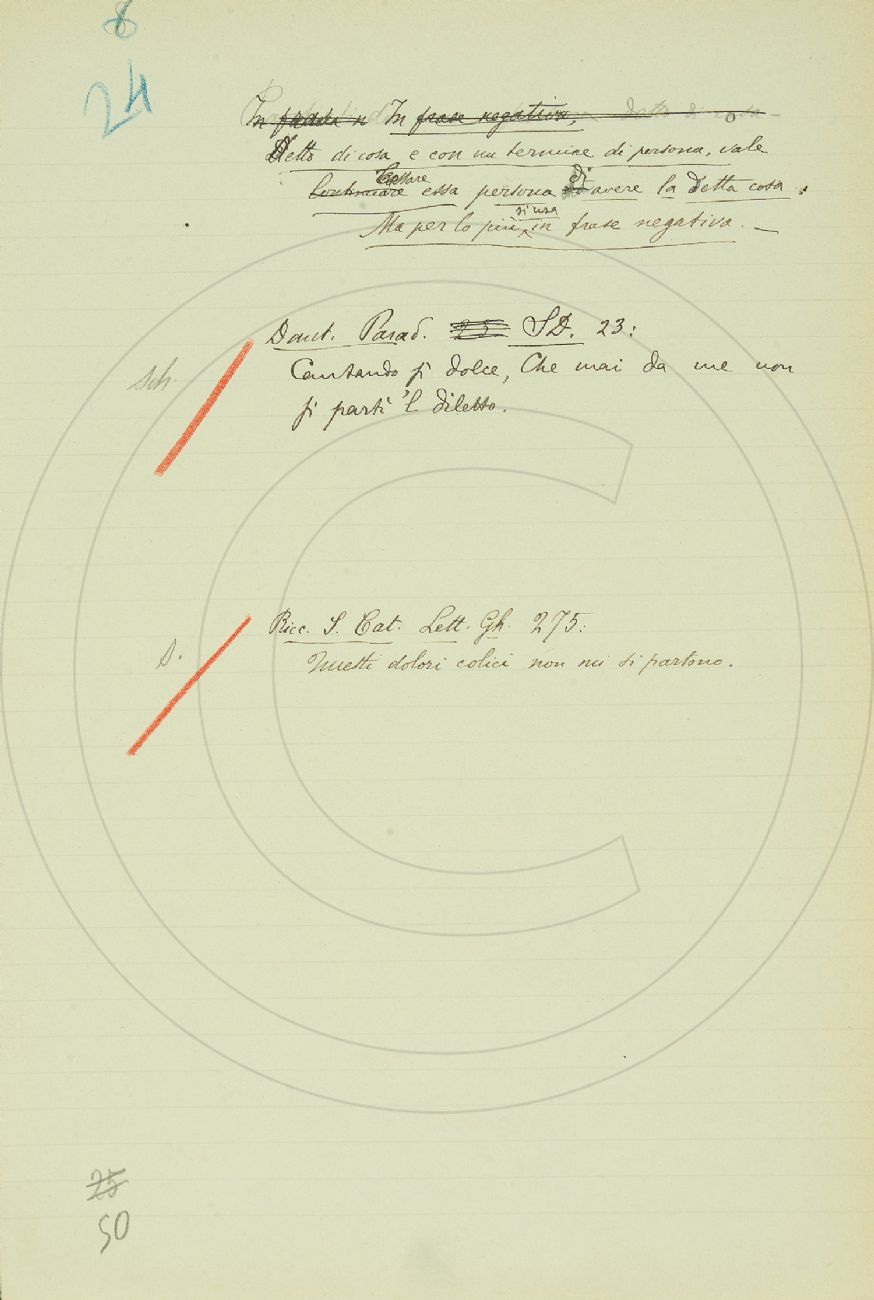 8
24
In frase n In frase negativa,
Detto di cosa e con un termine di persona, vale
Cessare
Continuare essa persona di avere la detta cosa.
si usa
Ma per lo più in frase negativa. —
Dant. Parad. 25 SD. 23:
sch.
Cantando sì dolce, Che mai da me non
si partì 'l diletto.
Ricc. S. Cat. Lett. Gh. 275:
s.
Questi dolori colici non mi si partono.
25
50